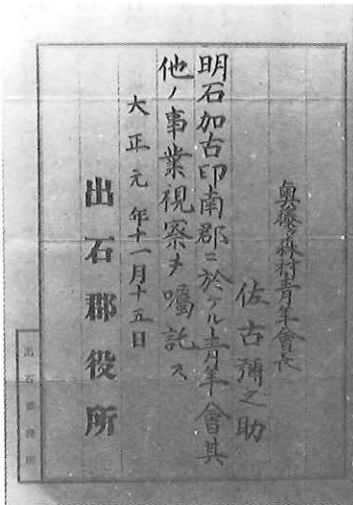 奥藤森村青年會長
佐古彌之助
明石加古印南郡ニ於ケル青年會其
他ノ事業視察ヲ囑託ス
大正元年十一月十五日
出石郡役所
出石郡役所